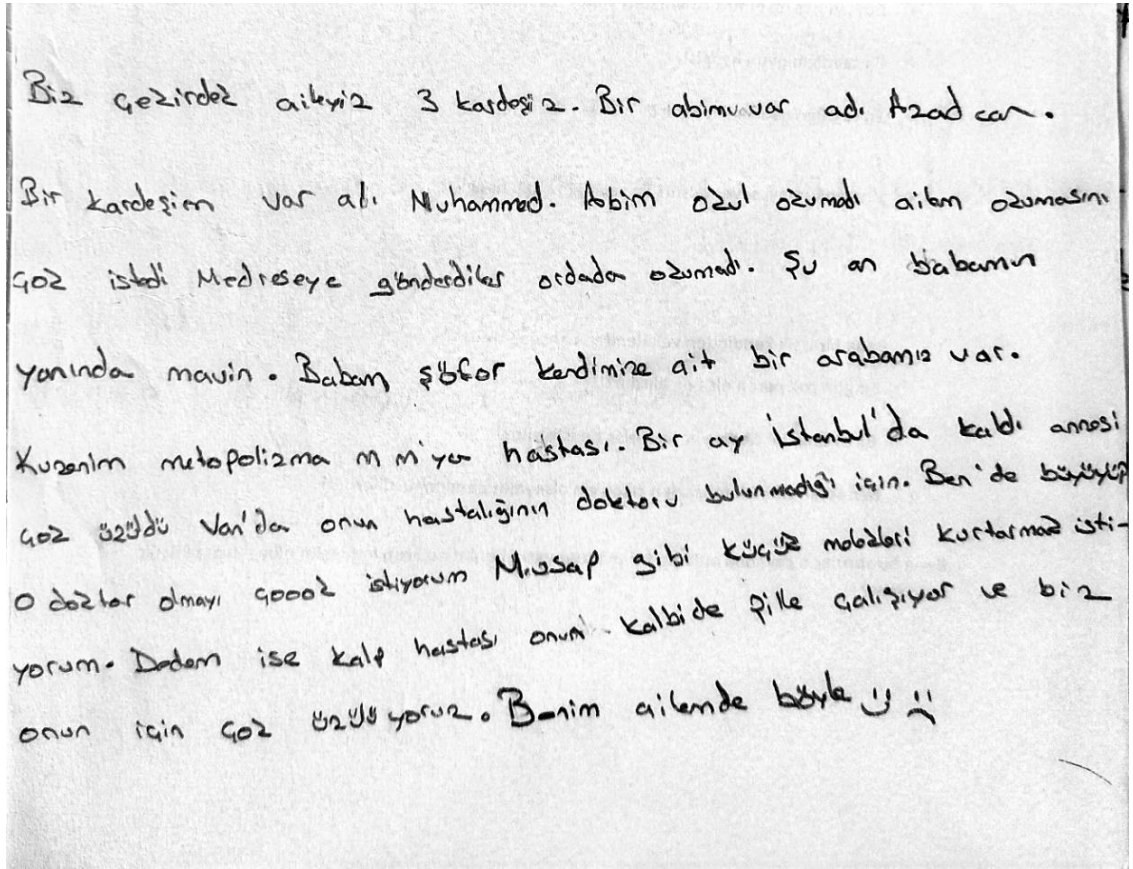 Biz çekirdek aileyiz 3 kardeşiz. Bir abimvar var adı Azad can.
Bir kardeşim var adı Muhammed. Abim okul okumadı ailem okumasını
çok istedi Medreseye gönderdiler ordada okumadı. Şu an babamın
yanında mavin. Babam şöfor kendimize ait bir arabamız var.
Kuzenim metopolizma m m'ya hastası. Bir ay İstanbul'da kaldı annesi
çok üzüldü Van'da onun hastalığının doktoru bulunmadığı için. Ben'de büyüyüp
o doktor olmayı çoook istiyorum Musap gibi küçük melekleri kurtarmak isti-
yorum. Dedem ise kalp hastası onun kalbide pille çalışıyor ve biz
onun için çok üzülüyoruz. Benim ailemde böyle